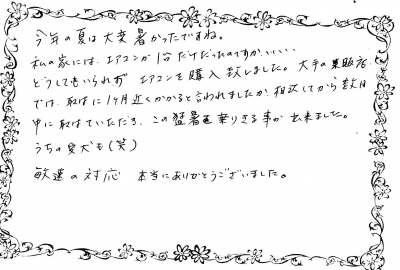 今年の夏は大変暑かったですね。
私の家には、エアコンが1台だけだったのですが、、、、
どうしてもいられず エアコンを購入致しました。大手の量販店
では、取付に1ヶ月近くかかると言われましたが、相談してから数日
中に取付ていただき、この猛暑を乗りきる事が出来ました。
うちの愛犬も(笑)
敏速の対応 本当にありがとうございました。